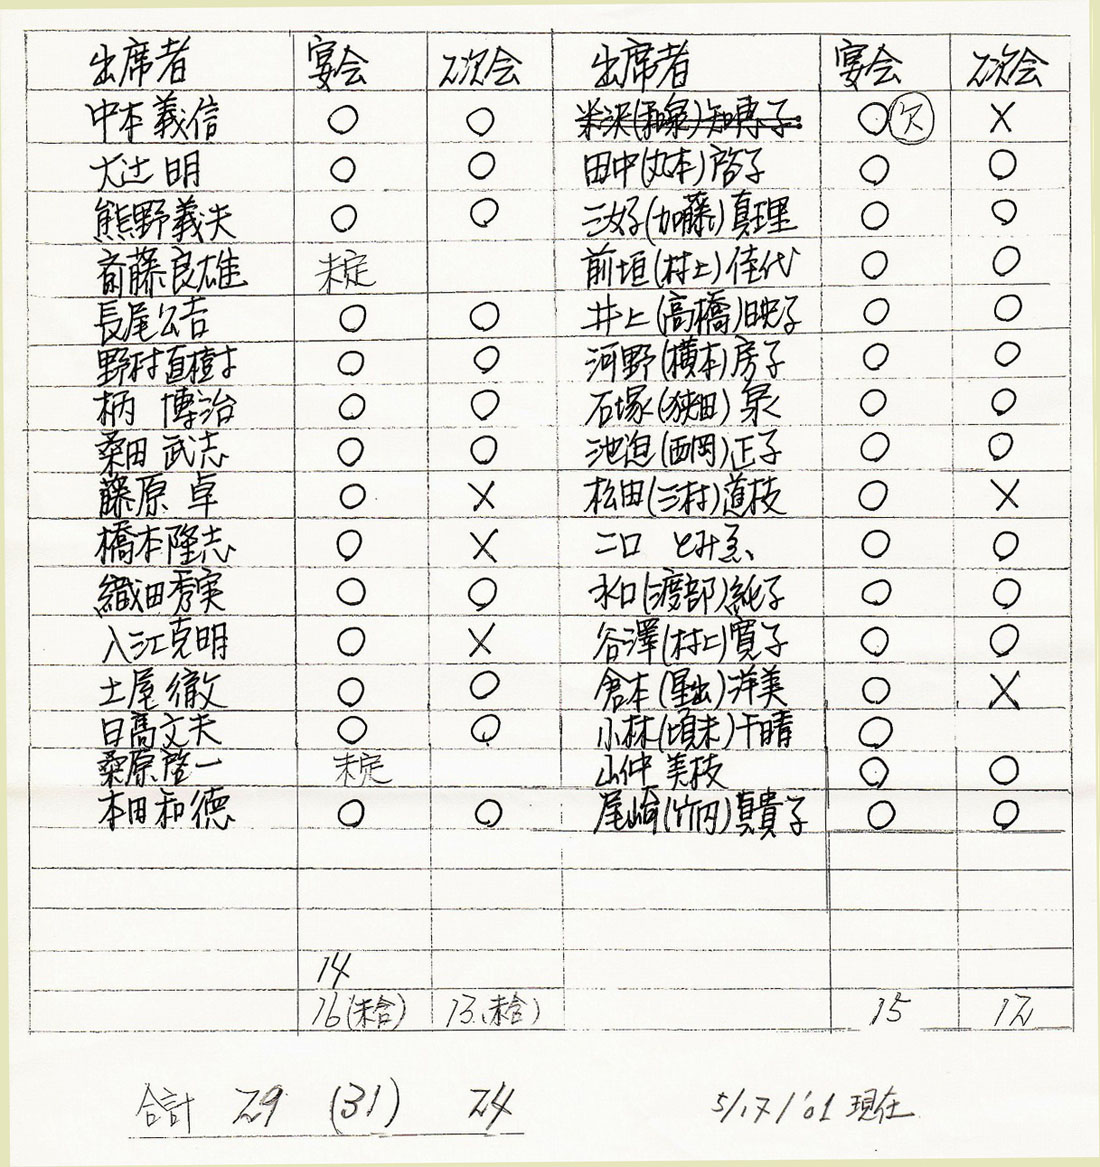 出席者 宴会 2次会 出席者 宴会 2次会
中本義信 ○ ○ 米沢(和泉)知専子 ○ 欠 ×
大辻 明 ○ ○ 田中(丸本)啓子 ○ ○
熊野義夫 ○ ○ 三好(加藤)真理 ○ ○
斎藤良雄 未定 前垣(村上)佳代 ○ ○
長尾公吉 ○ ○ 井上(高橋)映子 ○ ○
野村直樹 ○ ○ 河野(横本)房子 ○ ○
柄 博治 ○ ○ 石塚(狭田)泉 ○ ○
桑田 武志 ○ ○ 池迫(西岡)正子 ○ ○
藤原 卓 ○ × 松田(三村)道枝 ○ ×
橋本隆志 ○ × 二口 とみゑ ○ ○
織田秀実 ○ ○ 水口(渡部)純子 ○ ○
入江克明 ○ × 谷澤(村上)寛子 ○ ○
土屋 徹 ○ ○ 倉本(星出)洋美 ○ ×
日高文夫 ○ ○ 小林(頃末)千晴 ○
桑原啓一 未定 山仲 美枝 ○ ○
本田和徳 ○ ○ 尾崎(竹内)真貴子 ○ ○
14
16(未含) 13(未含) 15 12
合計 29 (31) 24
5/17/'01 現在